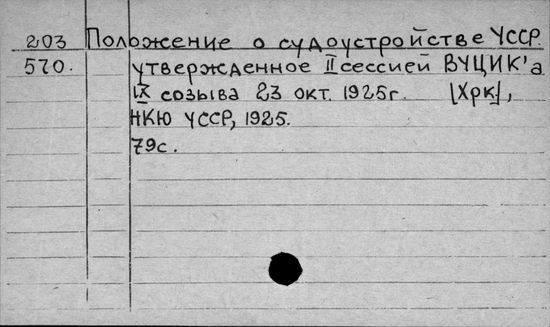 203 Положение о судоустройстве УССР.
570. утвержденное II сессией ВУЦИК'а
IX созыва 23 окт. 1925г. [Хрк],
НКЮ УССР, 1925.
79с.